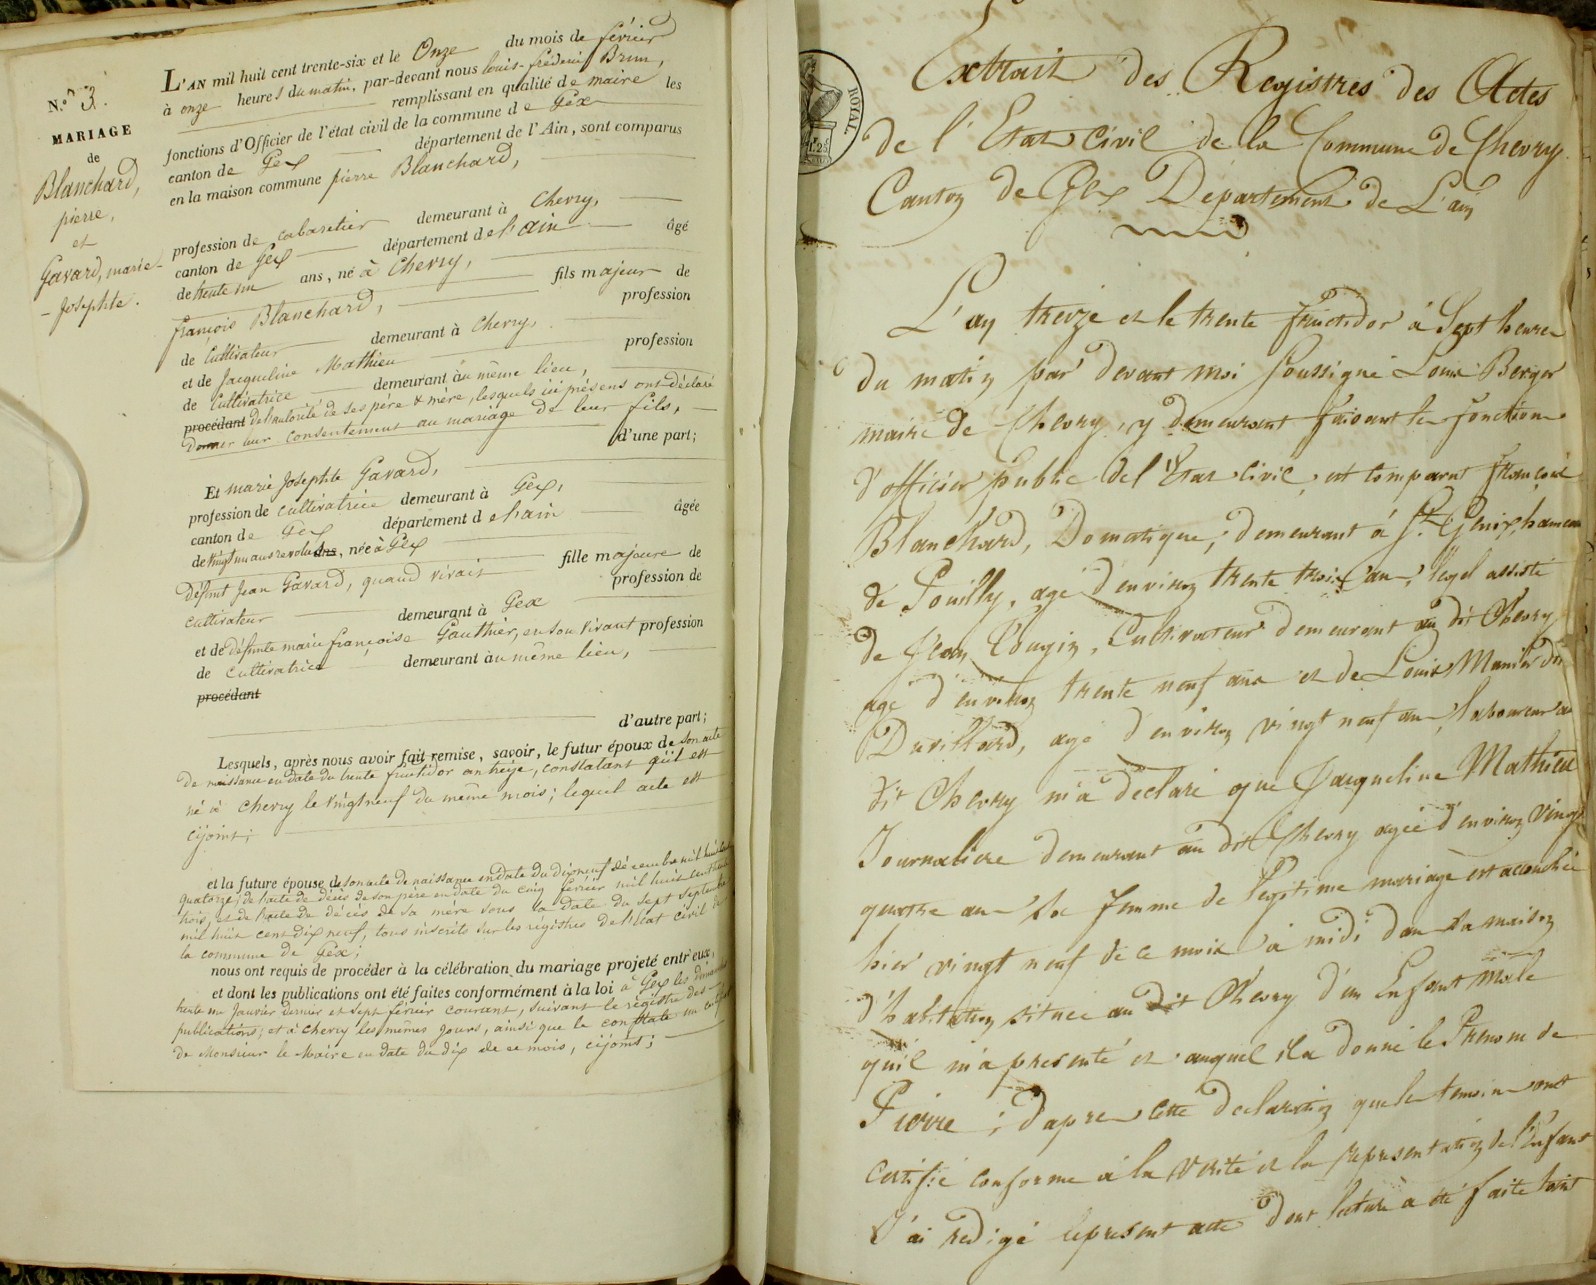 N.° 3.
MARIAGE
de
Blanchard,
pierre,
et
Gavard, marie-
-Josephte.
L'AN mil huit cent trente-six et le Onze du mois de février
à onze heures du matin, par-devant nous louis-frédéric Brun,
remplissant en qualité de maire les
fonctions d'Officier de l'état civil de la commune de Gex
canton de Gex département de l'Ain, sont comparus
en la maison commune pierre Blanchard,
profession de cabaretier demeurant à Chevry,
canton de Gex département de l'ain âgé
de trente un ans, né à Chevry,
fils majeur de
françois Blanchard, profession
de Cultivateur demeurant à Chevry,
et de Jacqueline Mathieu profession
de Cultivatrice demeurant au même lieu,
procédant de l'autorité de ses père & mère, lesquels ici présens ont déclaré
donner leur consentement au mariage de leur fils,
d'une part;
Et marie Josephte Gavard,
profession de cultivatrice demeurant à Gex,
canton de Gex département de l'ain âgée
de vingt un ans révolus ans, née à Gex
fille majeure de
défunt Jean Gavard, quand vivait profession de
cultivateur demeurant à Gex
et de défunte marie françoise Gauthier, en son vivant profession
de cultivatrice demeurant au même lieu,
procédant
d'autre part;
Lesquels, après nous avoir fait remise, savoir, le futur époux de son acte
de naissance en date du trente fructidor an treize, constatant qu'il est
né à Chevry le vingt neuf du même mois; lequel acte est
cijoint;
et la future épouse de son acte de naissance en date du dixneuf décembre mil huit cent
quatorze; de l'acte de décès de son père en date du cinq février mil huit cent trente
trois, et de l'acte de décès de sa mère sous la date du sept septembre
mil huit cent dix neuf, tous inscrits sur les régistres de l'état civil de
la commune de Gex;
nous ont requis de procéder à la célébration du mariage projeté entr'eux,
et dont les publications ont été faites conformément à la loi à Gex les dimanches
trente un janvier dernier et sept février courant, suivant le régistre des
publications; et à Chevry les mêmes jours, ainsi que le constate un certificat
de Monsieur le Maire en date du dix de ce mois, cijoint;
ROYAL.
Extrait des Registres des Actes
de l'Etat Civil de la Commune de Chevry
Canton de Gex Departement de L'ain
L'an treize et le trente fructidor à Sept heures
du matin par devant moi Soussigné Louis Berger
maire de Chevry, y demeurant faisant les fonctions
d'officier public de l'Etat Civil, est comparut François
Blanchard, Domestique, demeurant à St. Genix, hameau
de Pouilly, agé d'environ trente trois ans, lequel assisté
de Jean Cougin, Cultivateur demeurant au dit Chevry
agé d'environ trente neuf ans et de Louis Manier dit
Duvillard, agé d'environ vingt neuf ans, laboureur au
dit Chevry m'a declaré que Jacqueline Mathieu
Journaliere demeurant au dit Chevry agée d'environ vingt
quatre ans sa femme de légitime mariage est accouchée
hier vingt neuf de ce mois à midi dans sa maison
d'habitation située au dit Chevry d'un Enfant Male
qu'il m'a presenté et auquel il a donné le Prenom de
Pierre; d'après cette declaration que les temoins ont
certifié conforme à la verité et la representation de l'Enfant
J'ai redigé le present acte dont lecture a été faite tant